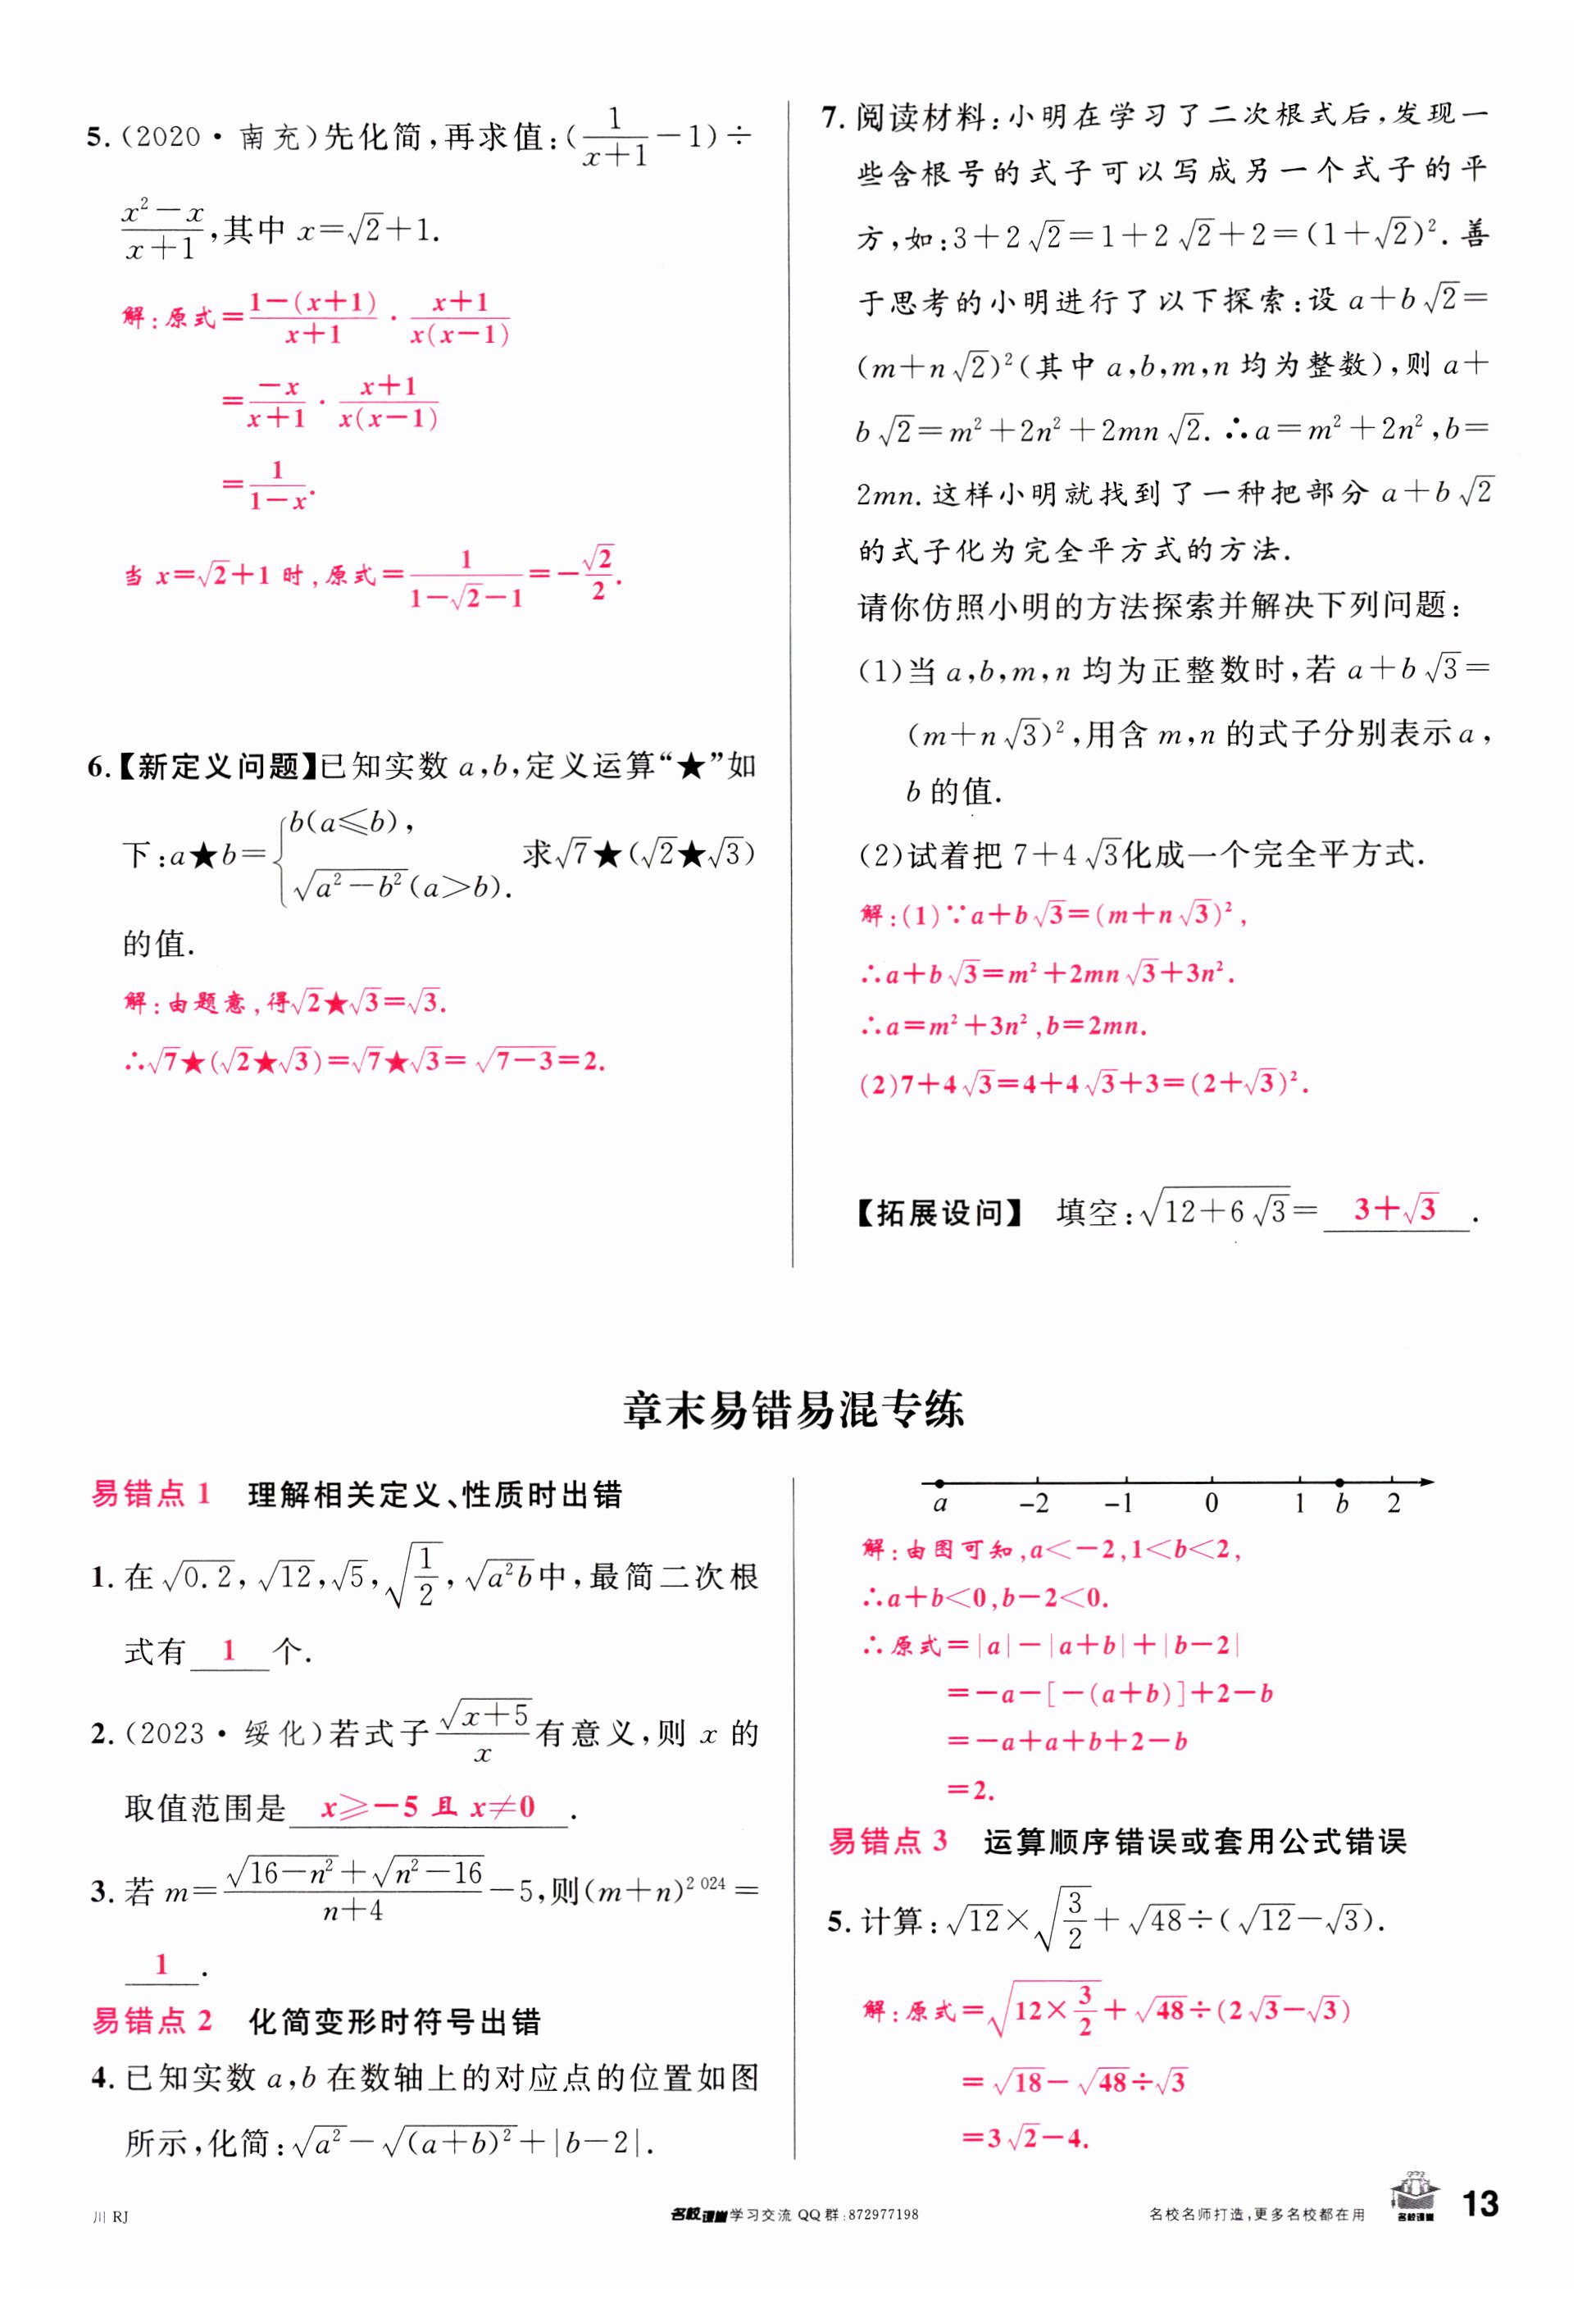 5.(2020·南充)先化简,再求值:(1/(x+1)－1)÷
(x²－x)/(x+1),其中 x=√2+1.
解:原式=(1－(x+1))/(x+1)·(x+1)/(x(x－1))
=(－x)/(x+1)·(x+1)/(x(x－1))
=1/(1－x).
当 x=√2+1 时,原式=1/(1－√2－1)=－√2/2.
6.【新定义问题】已知实数 a,b,定义运算“★”如
下:a★b={b(a≤b), √(a²－b²)(a>b). 求√7★(√2★√3)
的值.
解:由题意,得√2★√3=√3.
∴√7★(√2★√3)=√7★√3=√(7－3)=2.
7.阅读材料:小明在学习了二次根式后,发现一
些含根号的式子可以写成另一个式子的平
方,如:3+2√2=1+2√2+2=(1+√2)².善
于思考的小明进行了以下探索:设 a+b√2=
(m+n√2)²(其中 a,b,m,n 均为整数),则 a+
b√2=m²+2n²+2mn√2.∴a=m²+2n²,b=
2mn.这样小明就找到了一种把部分 a+b√2
的式子化为完全平方式的方法.
请你仿照小明的方法探索并解决下列问题:
(1)当 a,b,m,n 均为正整数时,若 a+b√3=
(m+n√3)²,用含 m,n 的式子分别表示 a,
b 的值.
(2)试着把 7+4√3化成一个完全平方式.
解:(1)∵a+b√3=(m+n√3)²,
∴a+b√3=m²+2mn√3+3n².
∴a=m²+3n²,b=2mn.
(2)7+4√3=4+4√3+3=(2+√3)².
【拓展设问】 填空:√(12+6√3)=3+√3.
章末易错易混专练
易错点 1 理解相关定义、性质时出错
1.在√0.2,√12,√5,√(1/2),√(a²b)中,最简二次根
式有 1 个.
2.(2023·绥化)若式子√(x+5)/x有意义,则 x 的
取值范围是 x≥－5 且 x≠0 .
3.若 m=(√(16－n²)+√(n²－16))/(n+4)－5,则(m+n)^2 024=
1 .
易错点 2 化简变形时符号出错
4.已知实数 a,b 在数轴上的对应点的位置如图
所示,化简:√a²－√(a+b)²+|b－2|.
a －2 －1 0 1 b 2
解:由图可知,a<－2,1<b<2,
∴a+b<0,b－2<0.
∴原式=|a|－|a+b|+|b－2|
=－a－[－(a+b)]+2－b
=－a+a+b+2－b
=2.
易错点 3 运算顺序错误或套用公式错误
5.计算:√12×√(3/2)+√48÷(√12－√3).
解:原式=√(12×3/2)+√48÷(2√3－√3)
=√18－√48÷√3
=3√2－4.
川 RJ
名校课堂学习交流 QQ 群:872977198
名校名师打造,更多名校都在用
名校课堂
13